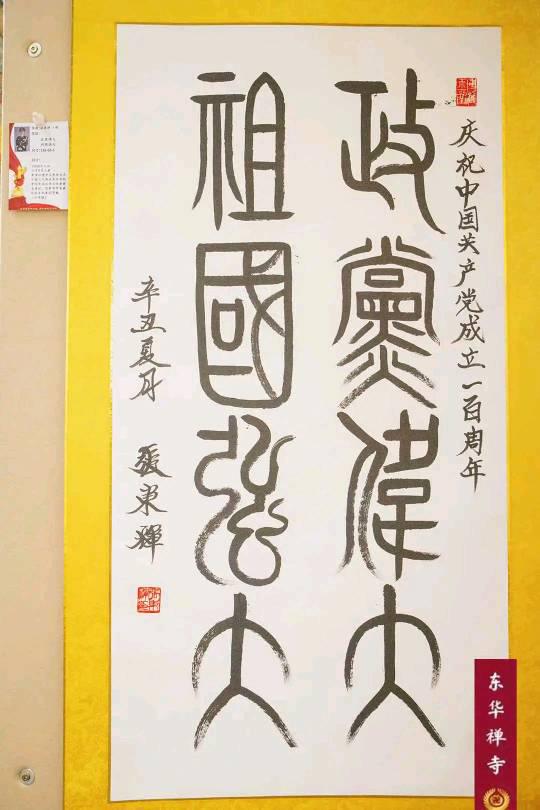 庆祝中国共产党成立一百周年
政黨偉大
祖國弘大
辛丑夏月 張東輝
东华禅寺